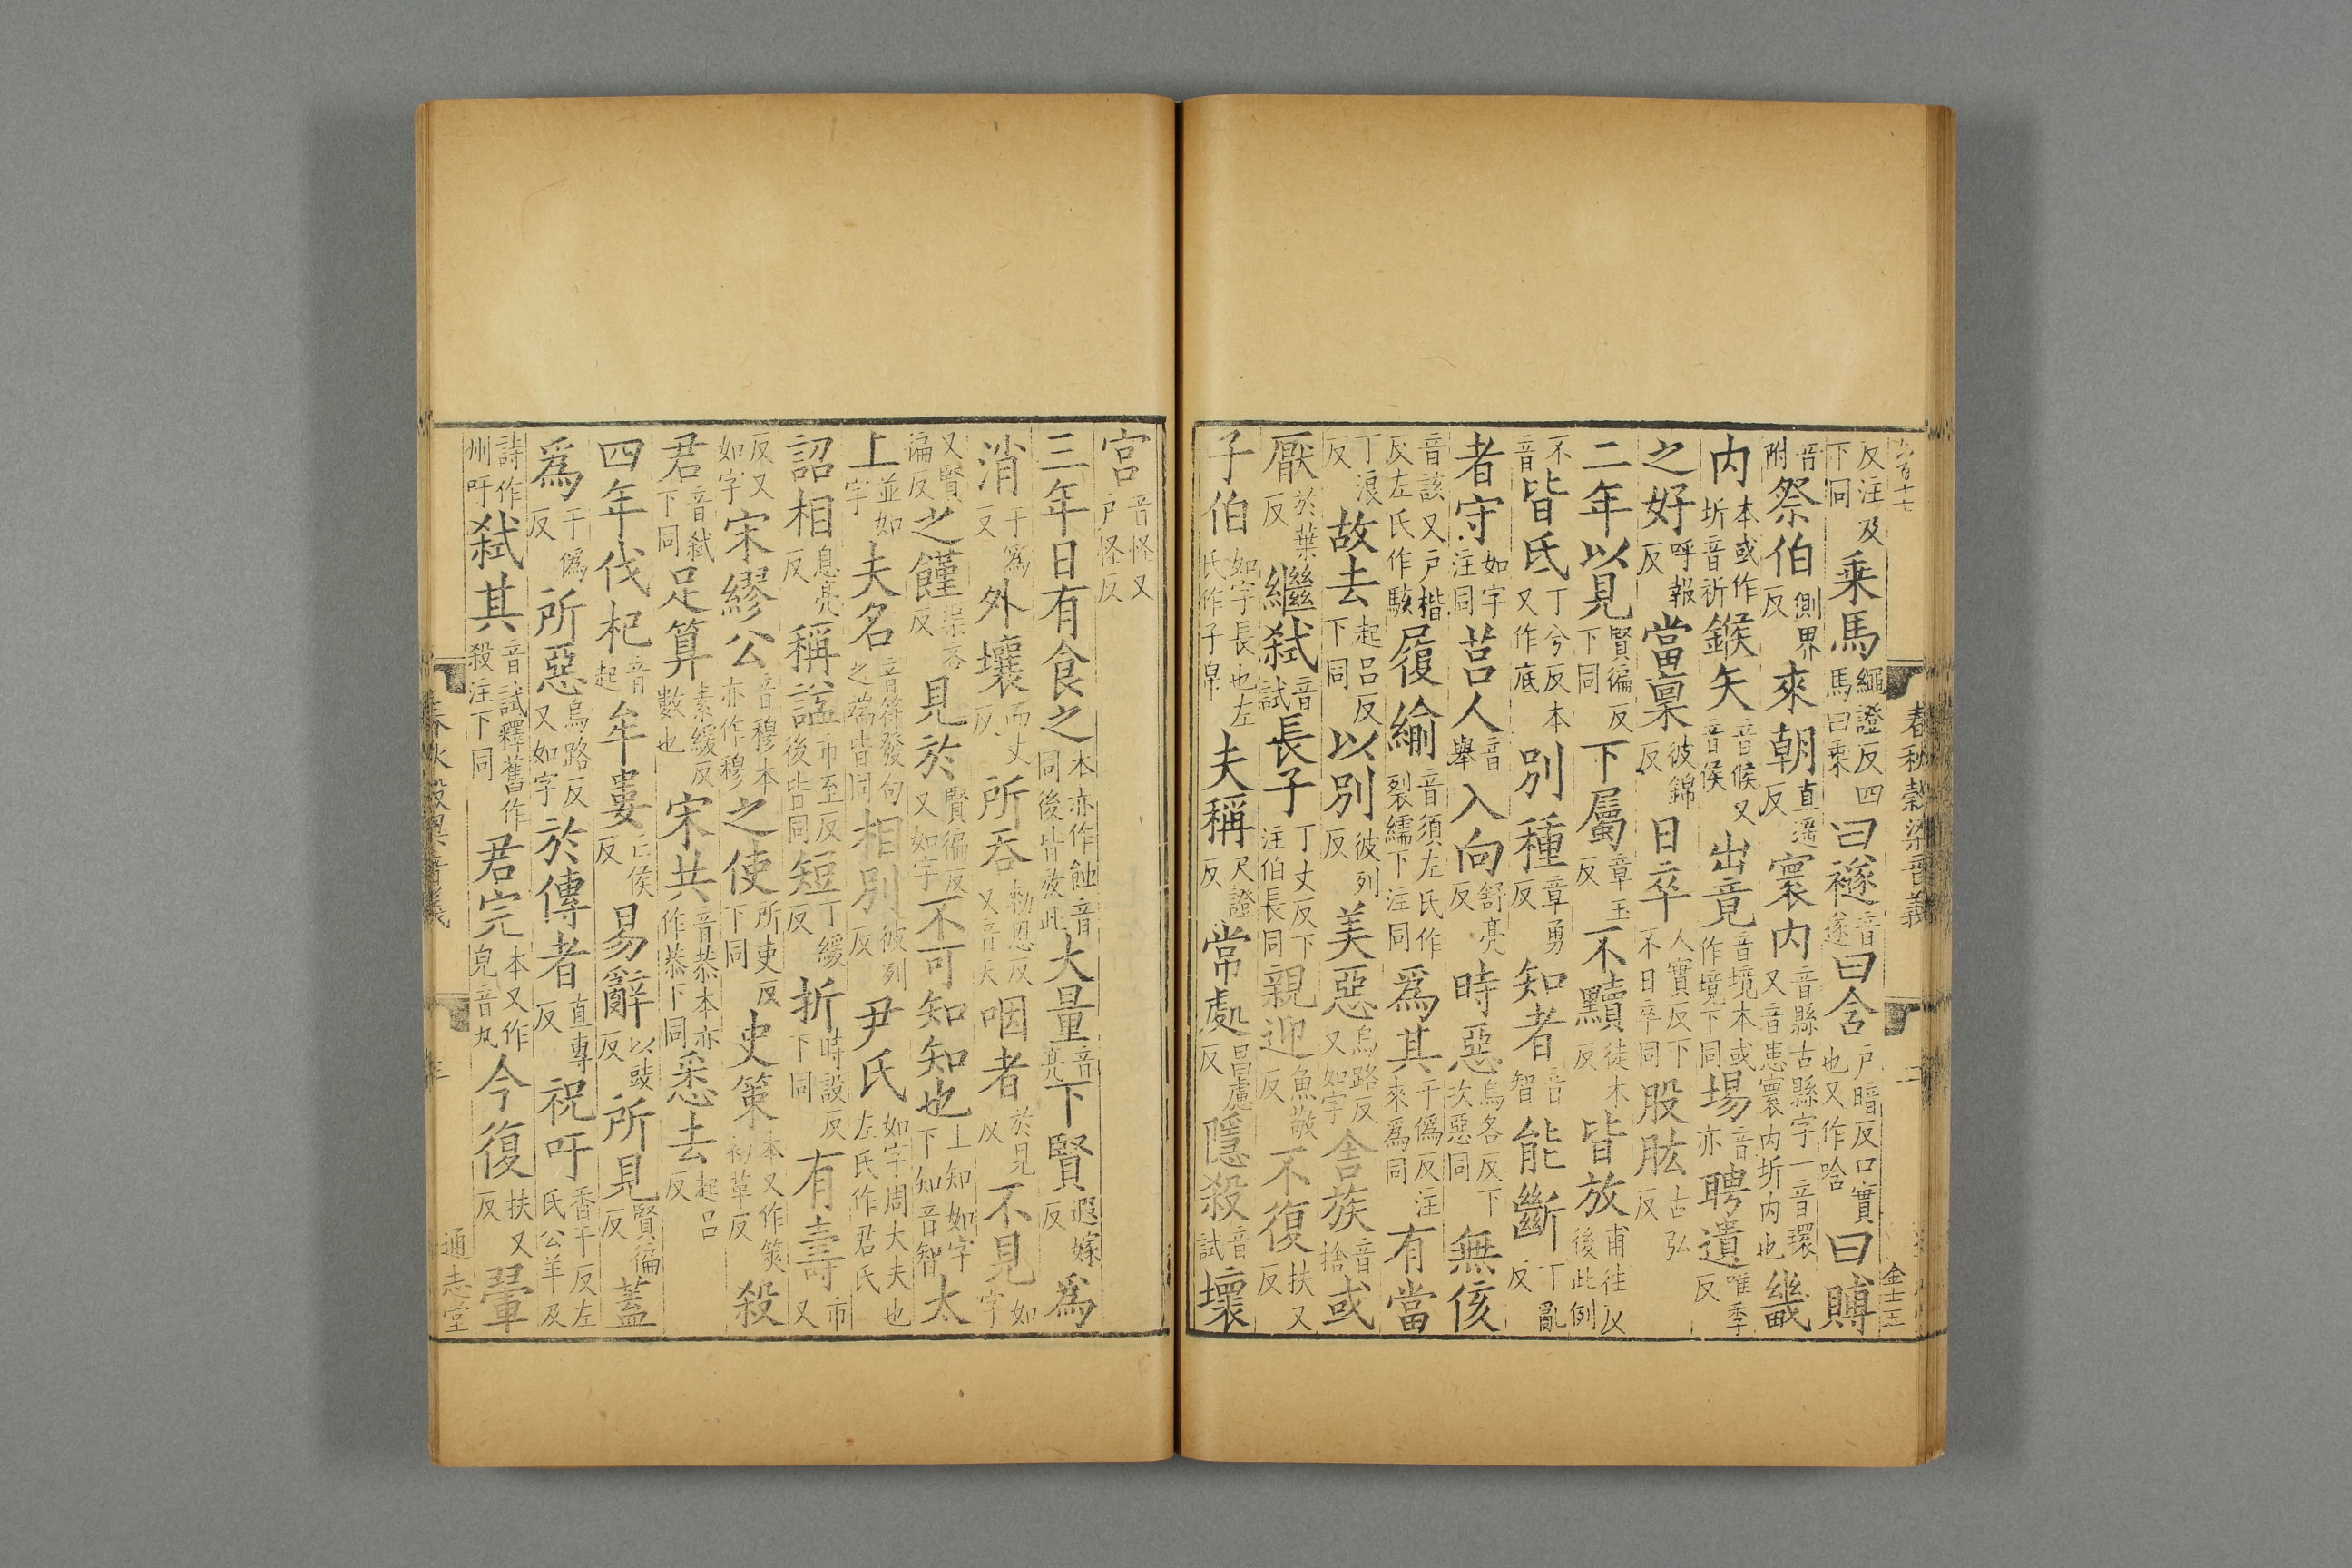 反注及下同乘馬繩證反四馬曰乘曰襚音遂曰含戶暗反口實也又作唅曰賵
音附祭伯側界反來朝直遥反寰内音縣古縣字一音環又音患寰内圻内也畿
内本或作圻音祈鍭矢音候又音侯出竟音境本或作境下同場音亦聘遺唯季反
之好呼報反當稟彼錦反日卒人實反下不日卒同股肱古弘反
二年以見賢徧反下同下屬章玉反不黷徒木反皆放甫往反後此例
不音皆氐丁兮反本又作底別種章勇反知者音智能斷丁亂反
者守如字注同莒人音舉入向舒亮反時惡烏各反下次惡同無侅
音該又戶楷反左氏作駭履緰音須左氏作裂繻下注同爲其于僞反注來爲同有當
丁浪反故去起呂反下同以別彼列反美惡烏路反又如字舍族音捨或
厭於葉反繼弑音試長子丁丈反下注伯長同親迎魚敬反不復扶又反
子伯如字長也左氏作子帛夫稱尺證反常處昌慮反隱殺音試壞
春秋穀梁音義
二
金士玉
宮音怪又戶怪反
三年日有食之本亦作蝕音同後皆放此大量音亮下賢遐嫁反爲
消于僞反外壤而丈反所吞勑恩反又音天咽者於見反不見如字
又賢徧反之饉渠吝反見於賢徧反又如字不可知知也上知如字下知音智太
上並如字夫名音符發句之端皆同相別彼列反尹氏如字周大夫也左氏作君氏
詔相息亮反稱謚市至反後皆同短丁緩反折時設反下同有壽市又
反又如字宋繆公音穆本亦作穆之使所吏反下同史策本又作筴初革反殺
君音弑下同足算素緩反數也宋共音恭本亦作恭下同悉去起呂反
四年伐杞音起牟婁亡侯反易辭以豉反所見賢徧反蓋
爲于僞反所惡烏路反又如字於傳者直專反祝吁香于反左氏公羊及
詩作州吁弑其音試釋舊作殺注下同君完本又作皃音丸今復扶又反翬
通志堂